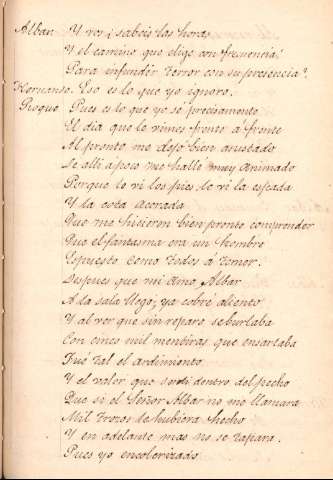 Alban. Y vos ¿sabeis las horas
Y el camino que elige con frecuencia?
Para infundir terror con su presencia?
Hernando. Eso es lo que yo ignoro.
Roque. Pues es lo que yo sé precisamente
El dia que le vimos frente a frente
Al pronto me dejó bien asustado
De alli á poco me hallé muy animado
Porque le vi los pies le vi la espada
Y la cota acerada
Que me hicieron bien pronto comprender
Que el fantasma era un hombre
Espuesto como todos á temer.
Despues que mi amo Albar
A la sala llegó; ya cobré aliento
Y al ver que sin reparo se burlaba
Con cinco mil mentiras que ensartaba
Fué tal el ardimiento
Y el valor que sentí dentro del pecho
Que si el Señor Albar no me llamara
Mil trozos le hubiera hecho
Y en adelante mas no se tapara.
Pues yo encolerizado